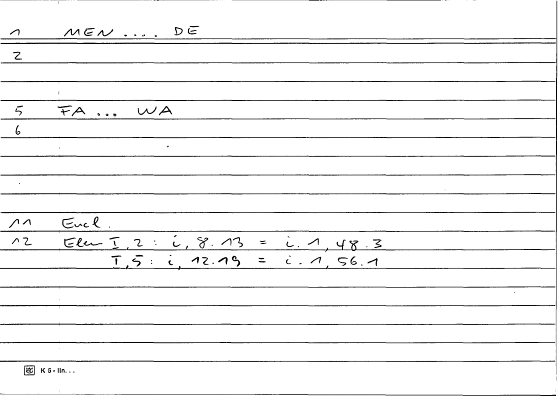 1 MEN .... DE
2
5 FA ... WA
6
11 Eucl.
12 Elem I, 2 : i, 8.13 = i. 1, 48.3
I, 5 : i, 12.19 = i. 1, 56.1
K 5 - lin...